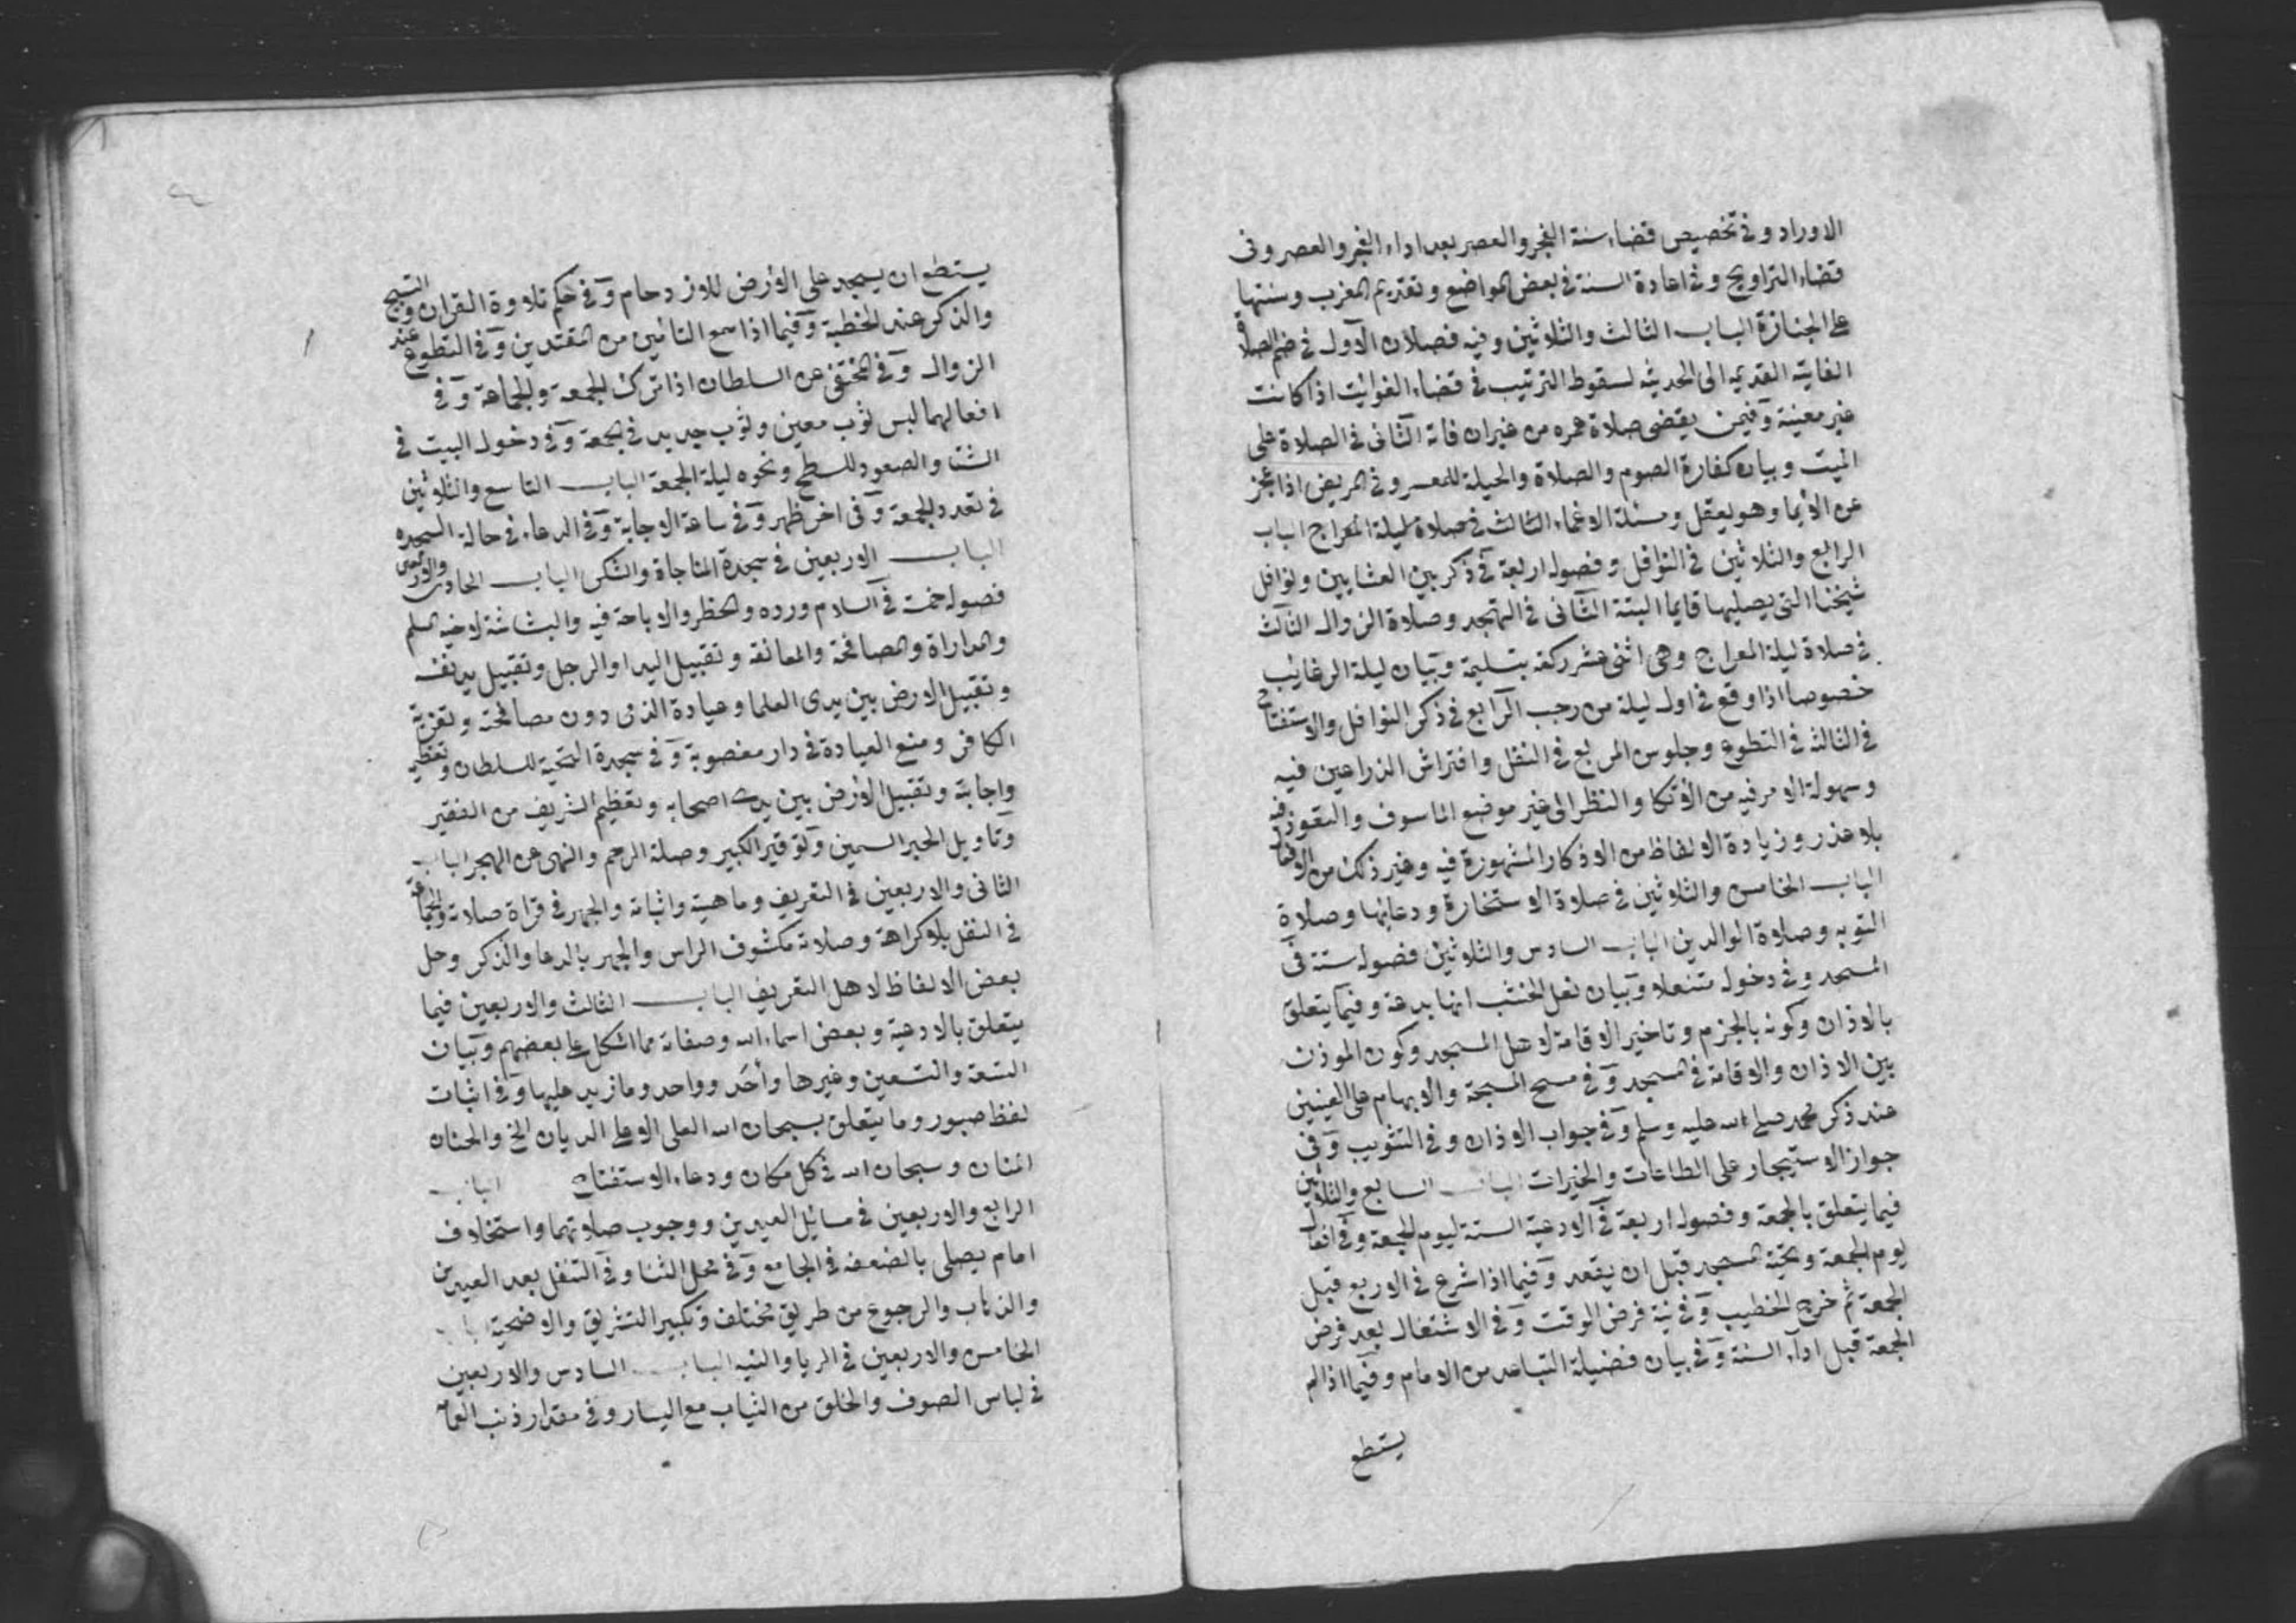 الاوراد وفى تخصيص قضاء سنة الفجر والعصر بعد اداء الفجر والعصر وفى
قضاء التراويح وفى اعادة السنة فى بعض المواضع وتقديم المغرب وسنتها
على الجنازة الباب الثالث والثلاثين وفيه فصلان الاول فى ضم الصلاة
الفايتة القديمه الى الحديثه لسقوط الترتيب فى قضاء الفوائت اذا كانت
غير معينة وفيمن يقضى صلاة عمره من غير ان فاته الثانى فى الصلاة على
الميت وبيان كفارة الصوم والصلاة والحيلة للمعسر وفى المريض اذا عجز
عن الايما وهو يعقل ومسئلة الاغماء الثالث فى صلاة ليلة المعراج الباب
الرابع والثلاثين فى النوافل وفصوله اربعة فى ذكر بين العشايين ونوافل
شيخنا التى يصليها قايما البتة الثانى فى التهجد وصلاة الزوال الثالث
فى صلاة ليلة المعراج وهى اثنى عشر ركعة بتسليمة وبيان ليلة الرغايب
خصوصا اذا وقع فى اول ليلة من رجب الرابع فى ذكر النوافل والاستفتاح
فى الثالثة فى التطوع وجلوس المربع فى النفل وافتراش الذراعين فيه
وسهولة الامر فيه من الاتكا والنظر الى غير موضع الماسوف والتعوذ فيه
بلا عذر وزيادة الالفاظ من الاذكار المشهورة فيه وغير ذلك من
الباب الخامس والثلاثين فى صلاة الاستخارة ودعايها وصلاة
التوبه وصلاة الوالدين الباب السادس والثلاثين فصوله ستة فى
المسجد وفى دخوله متنعلا وبيان نعل الخشب انها بدعة وفيما يتعلق
بالاذان وكونه بالجزم وتاخير الاقامة لاهل المسجد وكون الموذن
بين الاذان والاقامة فى المسجد وفى مسح المسبحة والابهام على العينين
عند ذكر محمد صلى الله عليه وسلم وفى جواب الاذان وفى التثويب وفى
جواز الاستيجار على الطاعات والخيرات الباب السابع والثلاثين
فيما يتعلق بالجمعة وفصوله اربعة فى الادعية الستة ليوم الجمعة وفى افعال
يوم الجمعة وتحية المسجد قبل ان يقعد وفيما اذا شرع فى الاربع قبل
الجمعة ثم خرج الخطيب وفى نية فرض الوقت وفى الاشتغال بعد فرض
الجمعة قبل اداء السنة وفى بيان فضيلة التباعد من الامام وفيما اذا لم
يستطع
يستطع ان يسجد على الارض للازدحام وفى حكم تلاوة القران والتسبيح
والذكر عند الخطبة وفيما اذا سمع التامين من المقتدين وفى التطوع عند
الزوال وفى المختفى عن السلطان اذا ترك الجمعة والجماعة وفى
افعالهما لبس ثوب معين وثوب جديد فى الجمعة وفى دخول البيت فى
الشتا والصعود للسطح ونحوه ليلة الجمعة الباب التاسع والثلاثين
فى تعدد الجمعة وفى اخر ظهر وفى ساعة الاجابة وفى الدعاء فى حالة السجده
الباب الاربعين فى سجدة المناجاة والشكر الباب الحادى والاربعين
فصوله خمسة فى السلام ورده والحظر والاباحة فيه والبشاشة لاخيه المسلم
والمداراة والمصافحة والمعانقة وتقبيل اليد او الرجل وتقبيل يد نفسه
وتقبيل الارض بين يدى العلما وعيادة الذمى دون مصافحته وتعزية
الكافر ومنع العيادة فى دار مغصوبة وفى سجدة التحية للسلطان وتعظيم
واجابته وتقبيل الارض بين يدى اصحابه وتعظيم الشريف من الفقير
وتاويل الحبر السمين وتوقير الكبير وصلة الرحم والنهى عن الهجر الباب
الثانى والاربعين فى التعريف وماهيته واثباته والجهر فى قراة صلاته والجماعة
فى النفل بلا كراهة وصلاته مكشوف الراس والجهر بالدعا والذكر وحل
بعض الالفاظ لاهل التعريف الباب الثالث والاربعين فيما
يتعلق بالادعية وبعض اسماء الله وصفاته مما اشكل على بعضهم وبيان
التسعة والتسعين وغيرها وأحد وواحد وما زيد عليها وفى اثبات
لفظ صبور وما يتعلق بسبحان الله العلى الاعلى الديان الخ والحنان
المنان وسبحان الله فى كل مكان ودعاء الاستفتاح الباب
الرابع والاربعين فى مسائل العيدين ووجوب صلاتهما واستخلاف
امام يصلى بالضعفه فى الجامع وفى محل الثنا وفى التنفل بعد العيدين
والذهاب والرجوع من طريق مختلف وتكبير التشريق والاضحية الباب
الخامس والاربعين فى الريا والنيه الباب السادس والاربعين
فى لباس الصوف والخلق من الثياب مع اليسار وفى مقدار ذنب العمامة